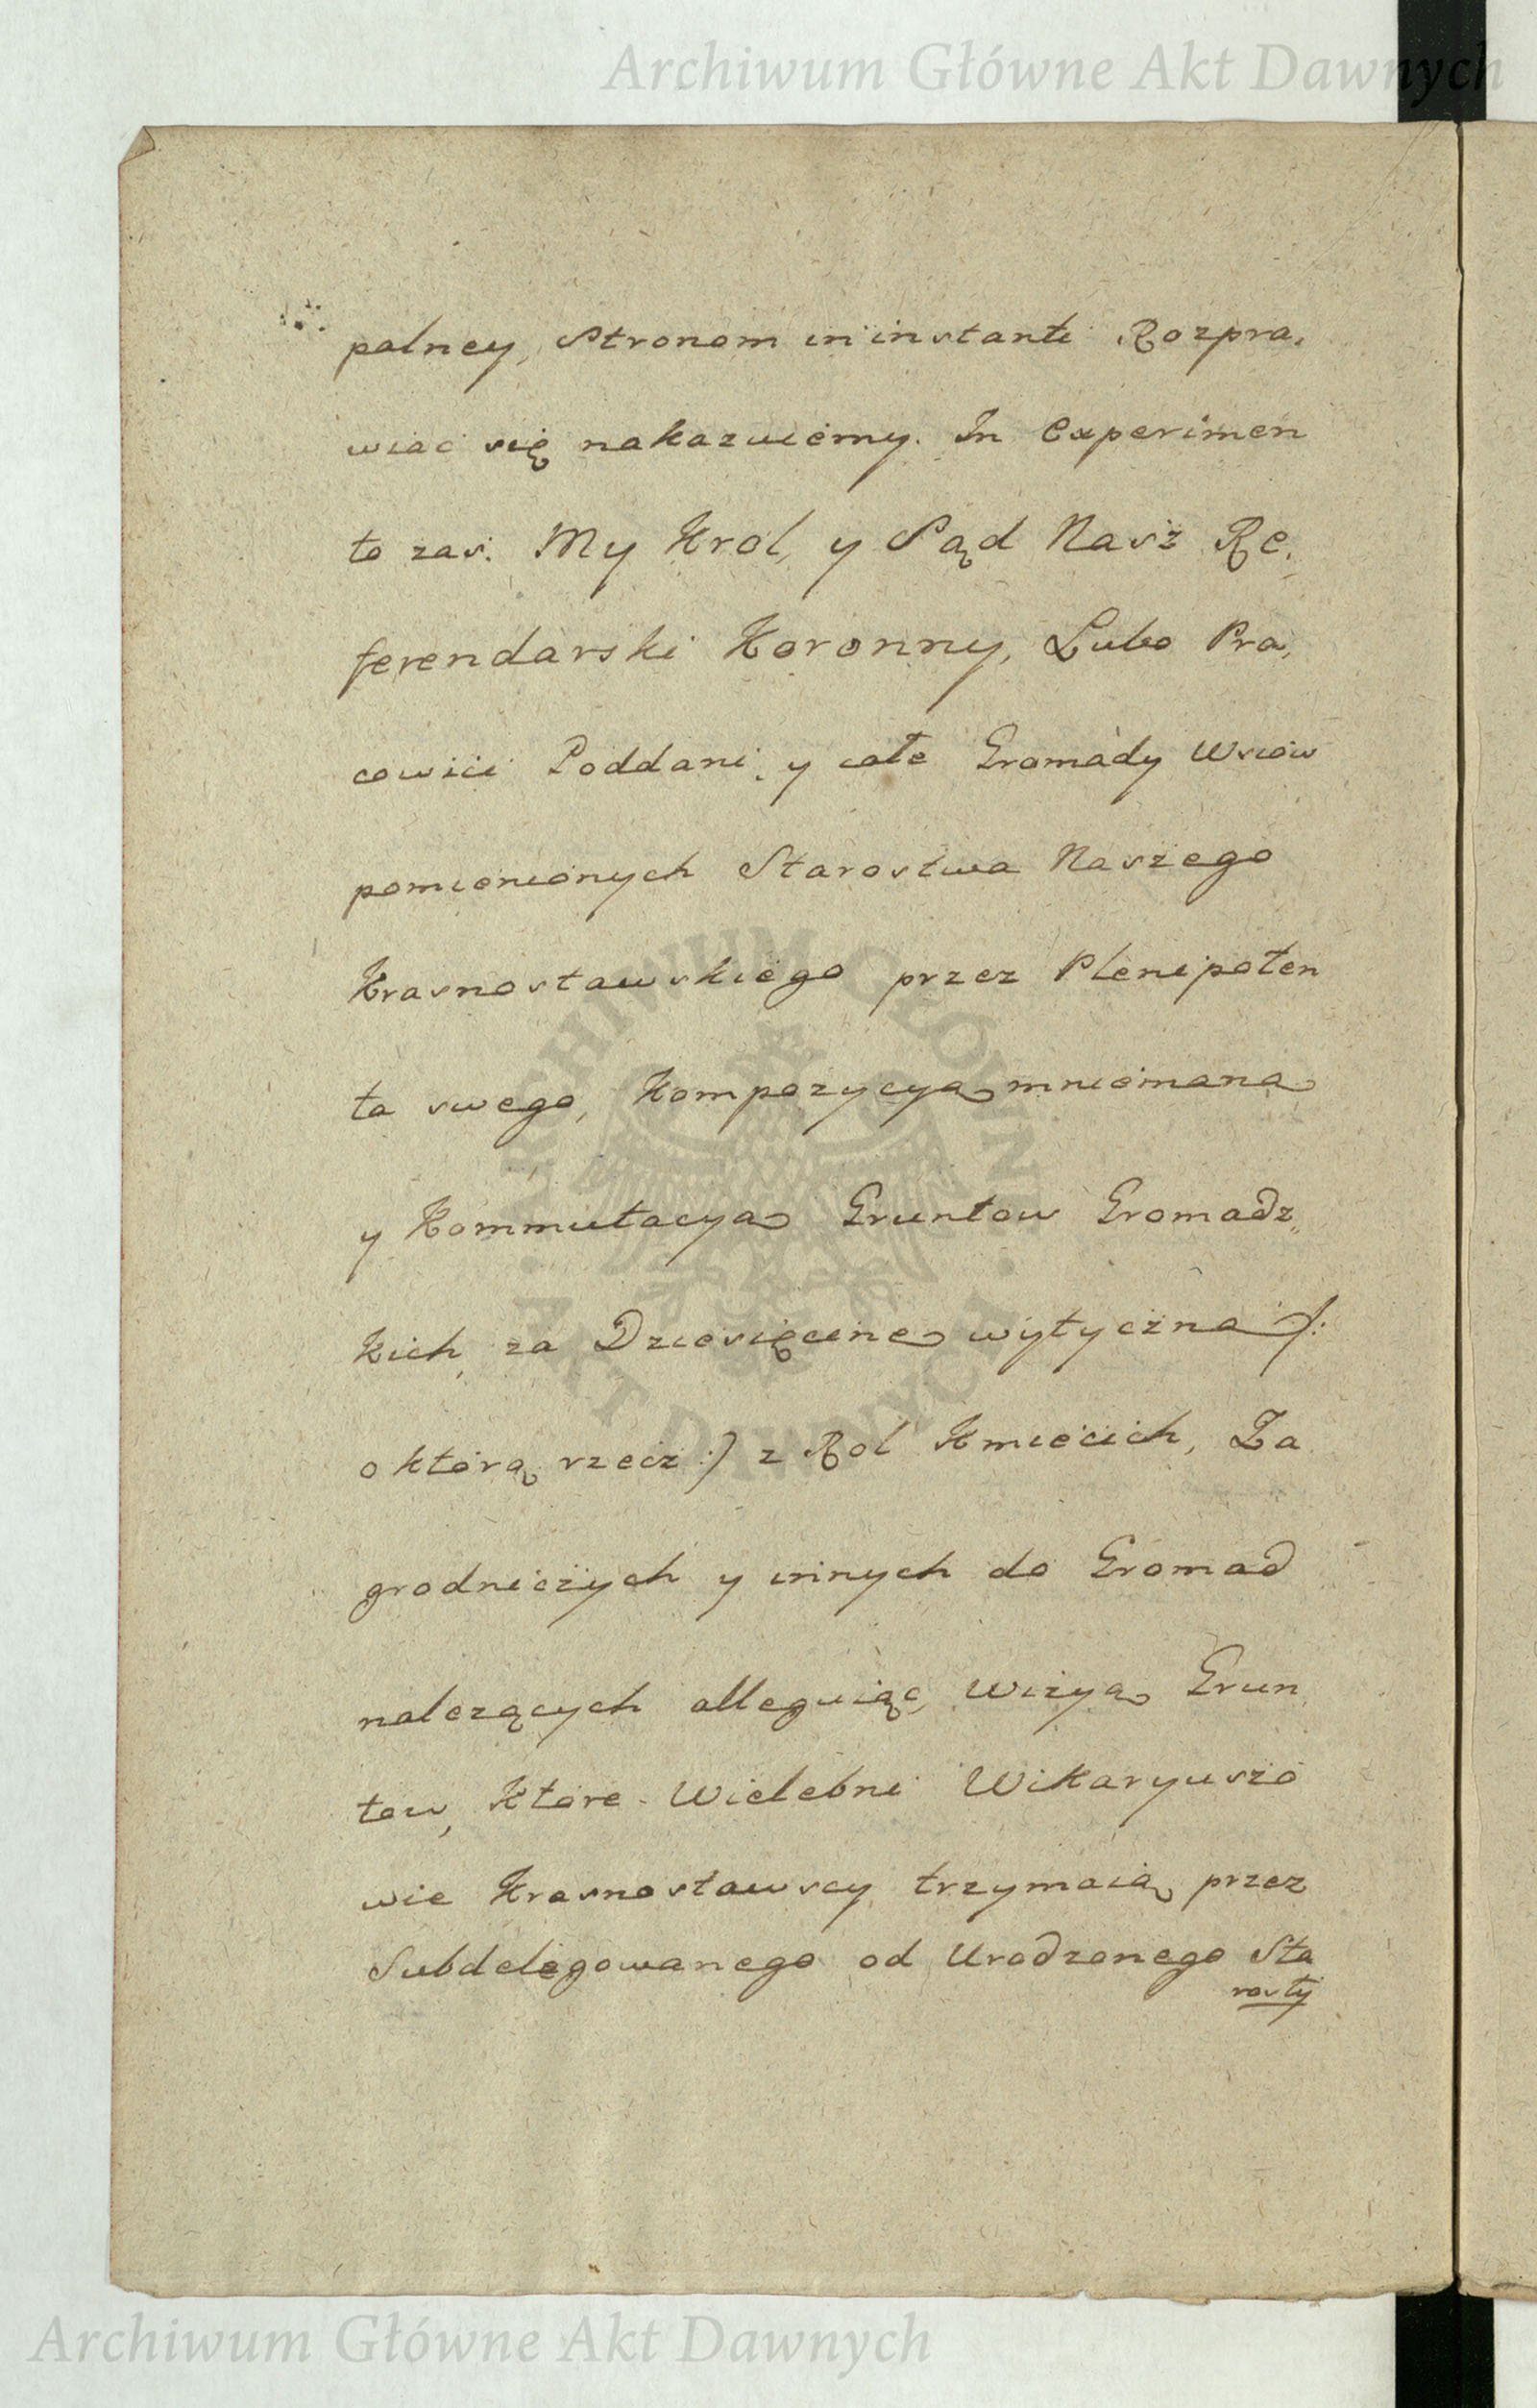 Archiwum Główne Akt Dawnych
palney, Stronom in instanti Rozpra,
wiać się nakazuiemy. In Experimen
to zaś. My Krol, y Sąd Nasz Re,
ferendarski Koronny, Lubo Pra,
cowici Poddani, y całe Gromady Wsiow
pomienionych Starostwa Naszego
Krasnostawskiego przez Plenipoten
ta swego, Kompozycyą mniemaną
y Kommutacyą Gruntow Gromadz,
kich, za Dziesięcinę wytyczną /:
o którą rzecz :/ z Rol Kmiecich, Za
grodniczych y innych do Gromad
nalezących alleguiąc, Wizyą Grun
tow, Które Wielebni Wikaryuszo
wie Krasnostawscy trzymaią przez
Subdelegowanego od Urodzonego Sta
rosty
ARCHIWUM GŁÓWNE · AKT DAWNYCH ·
Archiwum Główne Akt Dawnych